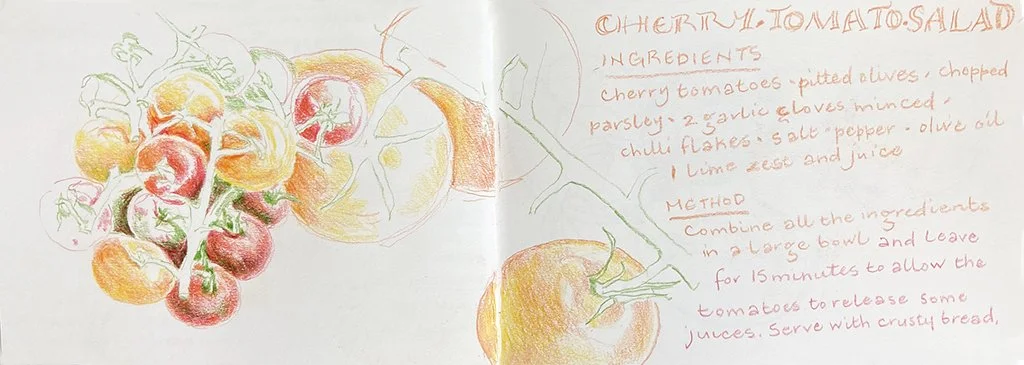 CHERRY·TOMATO·SALAD
INGREDIENTS
cherry tomatoes · pitted olives · chopped
parsley · 2 garlic cloves minced ·
chilli flakes · salt · pepper · olive oil
1 lime zest and juice
METHOD
Combine all the ingredients
in a large bowl and leave
for 15 minutes to allow the
tomatoes to release some
juices. Serve with crusty bread.